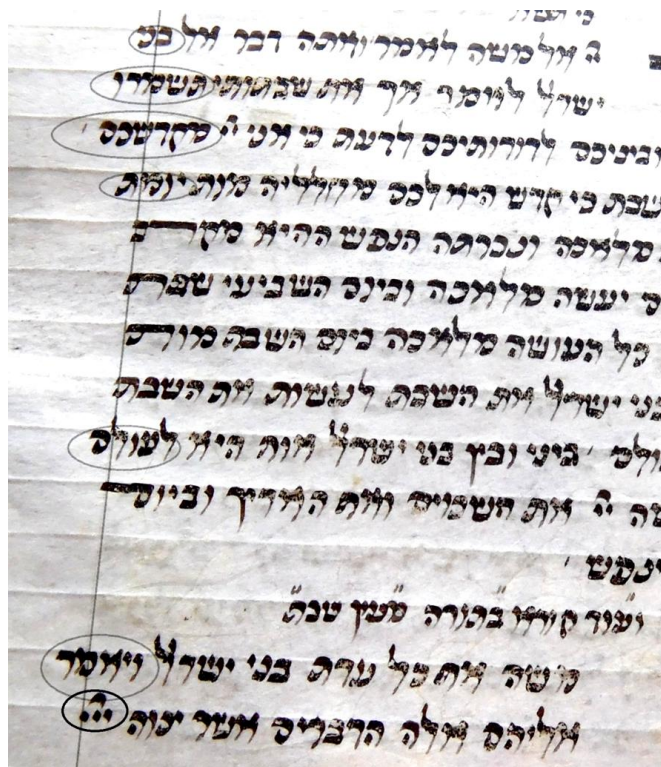 כי תשא
ה אל משה לאמר ואתה דבר אל בני
ישראל לאמר אך את שבתותי תשמרו
וביניכם לדורותיכם לדעת כי אני ה מקדשכם
שבת כי קדש היא לכם מחלליה מות יומת
מלאכה ונכרתה הנפש ההיא
יעשה מלאכה וביום השביעי
כל העושה מלאכה ביום השבת
בני ישראל את השבת לעשות את השבת
ביני ובין בני ישראל אות היא לעולם
ה את השמים ואת הארץ וביום
וינפש
ועוד קורא בתורה שבת
משה את כל עדת בני ישראל ויאמר
אליהם אלה הדברים אשר